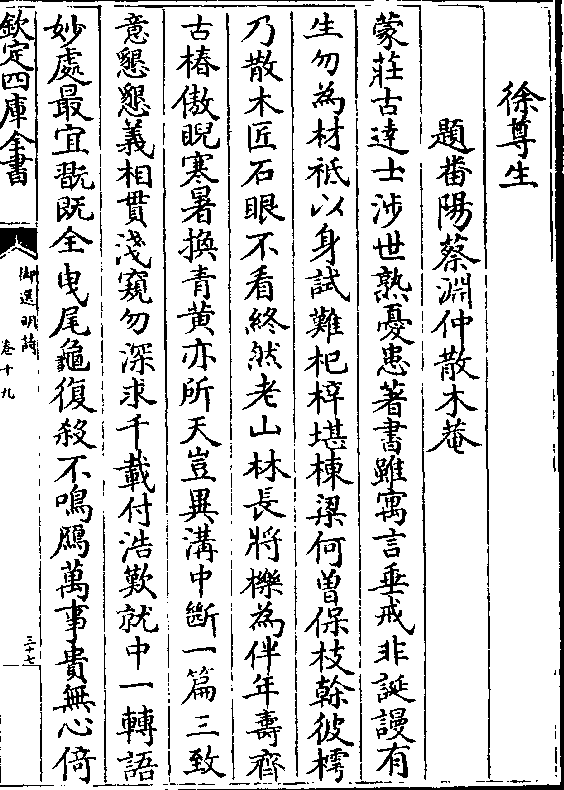 徐尊生
題番陽蔡淵仲散木菴
蒙莊古達士涉世熟憂患著書雖寓言垂戒非誕謾有
生勿為材祗以身試難杞梓堪棟梁何曾保枝榦彼樗
乃散木匠石眼不看終然老山林長將櫟為伴年壽齊
古椿傲睨寒暑換青黄亦所天豈異溝中斷一篇三致
意懇懇義相貫淺窺勿深求千載付浩歎就中一轉語
妙處最宜翫既全曳尾龜復殺不鳴鴈萬事貴無心倚
欽定四庫全書
御選明詩
卷十九
三十七